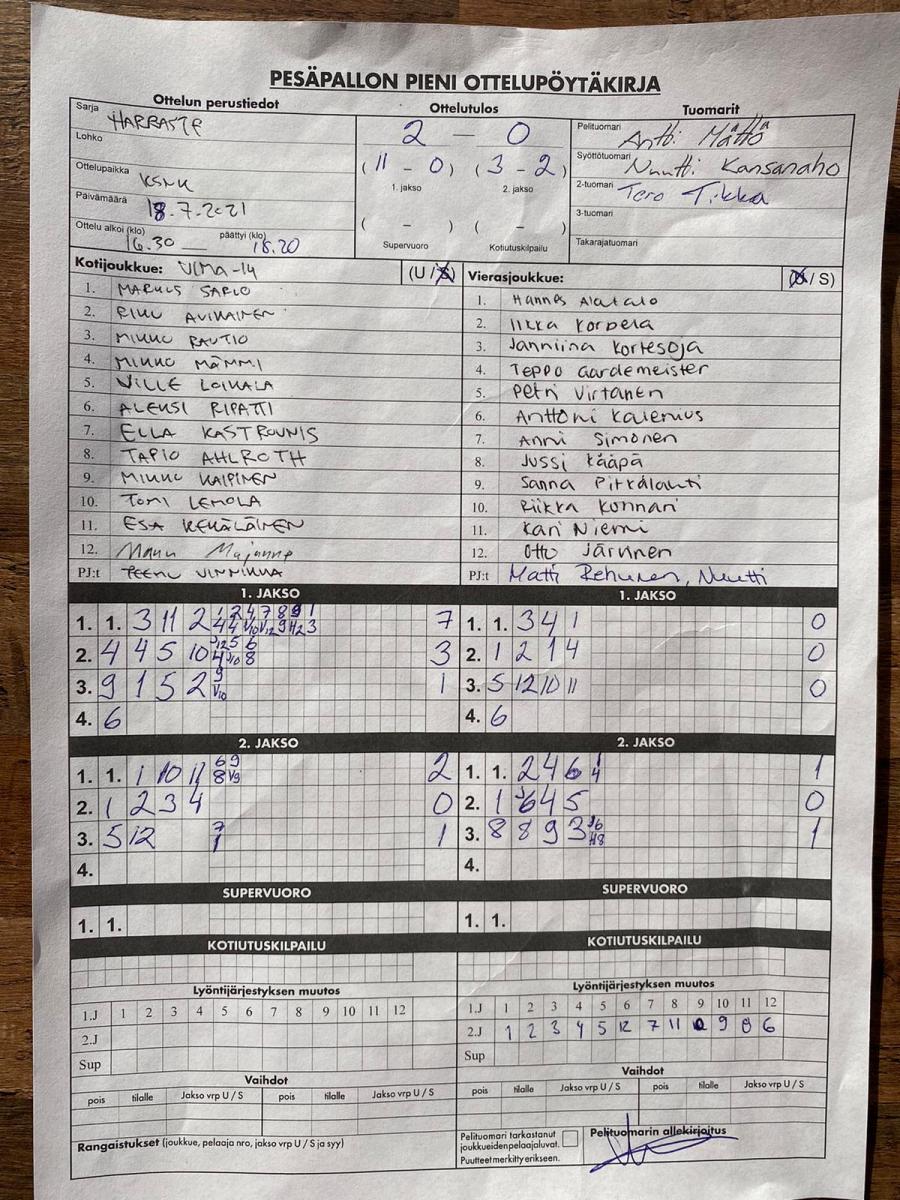 PESÄPALLON PIENI OTTELUPÖYTÄKIRJA
Ottelun perustiedot Ottelutulos Tuomarit
Sarja HARRASTE
Lohko
Ottelupaikka KSNK
Päivämäärä 18.7.2021
Ottelu alkoi (klo) 16.30 päättyi (klo) 18.20
2 - 0
(11 - 0) (3 - 2)
1. jakso 2. jakso
( - ) ( - )
Supervuoro Kotiutuskilpailu
Pelituomari Antti Mättö
Syöttötuomari Nuutti Kansanaho
2-tuomari Tero Tikka
3-tuomari
Takarajatuomari
Kotijoukkue: ULMA-14 (U / S)
1. MARKUS SARLO
2. RIKU AVIKAINEN
3. MIKKO RAUTIO
4. MIKKO MÄMMI
5. VILLE LOIKALA
6. ALEKSI RIPATTI
7. ELLA KASTROUNIS
8. TAPIO AHLROTH
9. MIKKO KAIPINEN
10. TOMI LEMOLA
11. ESA KEKÄLÄINEN
12. Manu
PJ:t TEEMU VINNIKKA
Vierasjoukkue: (U / S)
1. Hannes Alatalo
2. Ilkka Korpela
3. Janniina Kortesoja
4. Teppo Gardemeister
5. Petri Virtanen
6. Anttoni Kalermus
7. Anni Simonen
8. Jussi Kääpä
9. Sanna Pitkälahti
10. Riikka Kunnari
11. Kari Niemi
12. Otto Järvinen
PJ:t Matti Rehunen, Nuutti
1. JAKSO
1. 1. 3 11 2 7
2. 4 4 5 10 3
3. 9 1 5 2 1
4. 6
1. JAKSO
1. 1. 3 4 1 0
2. 1 2 1 4 0
3. 5 12 10 11 0
4. 6
2. JAKSO
1. 1. 1 10 11 2
2. 1 2 3 4 0
3. 5 12 1
4.
2. JAKSO
1. 1. 2 4 6 1
2. 1 4 5 0
3. 8 8 9 3 1
4.
SUPERVUORO
1. 1.
SUPERVUORO
1. 1.
KOTIUTUSKILPAILU
KOTIUTUSKILPAILU
Lyöntijärjestyksen muutos
1.J 1 2 3 4 5 6 7 8 9 10 11 12
2.J
Sup
Lyöntijärjestyksen muutos
1.J 1 2 3 4 5 6 7 8 9 10 11 12
2.J 1 2 3 4 5 12 7 11 9 8 6
Sup
Vaihdot
pois tilalle Jakso vrp U / S pois tilalle Jakso vrp U / S
Vaihdot
pois tilalle Jakso vrp U / S pois tilalle Jakso vrp U / S
Rangaistukset (joukkue, pelaaja nro, jakso vrp U / S ja syy)
Pelituomari tarkastanut
joukkueiden pelaajaluvat.
Puutteet merkitty erikseen.
Pelituomarin allekirjoitus